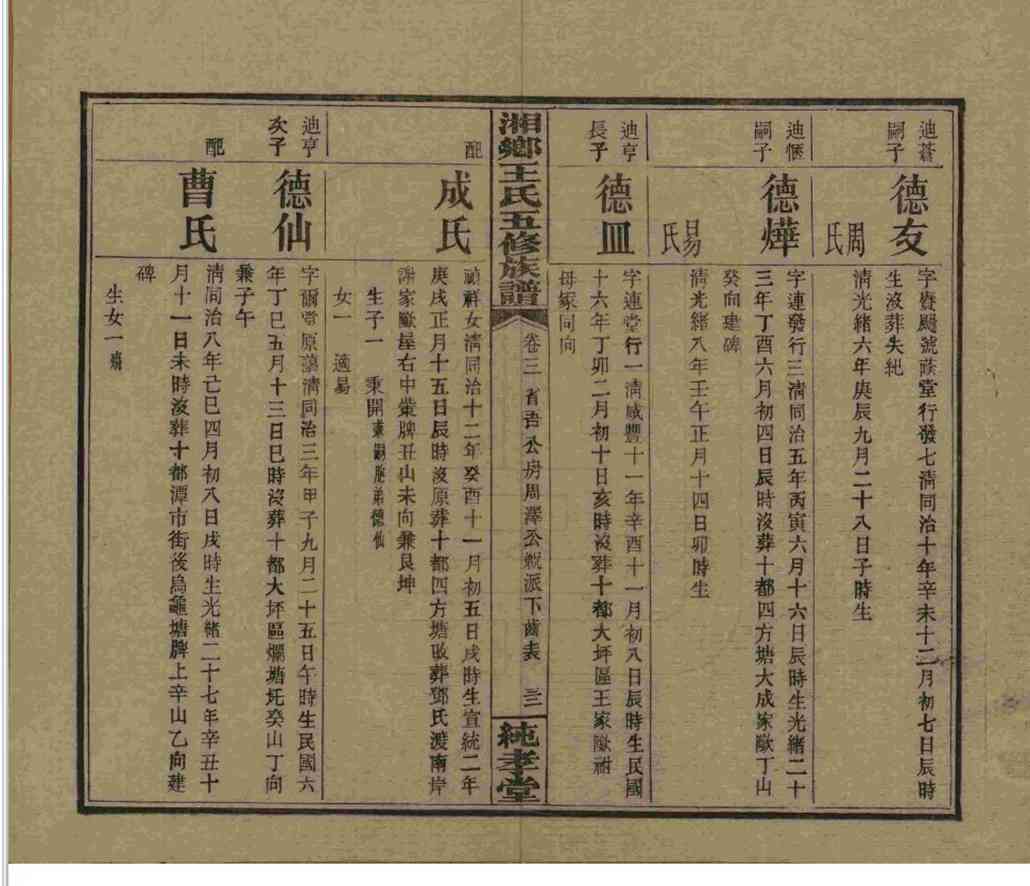 迪蒼嗣子
德友
周氏
字賡颺號葭堂行發七清同治十年辛未十二月初七日辰時
生沒葬失紀
清光緒六年庚辰九月二十八日子時生
迪愜嗣子
德燁
易氏
字連發行三清同治五年丙寅六月十六日辰時生光緒二十
三年丁酉六月初四日辰時沒葬十都四方塘大成家歐丁山
癸向建碑
清光緒八年壬午正月十四日卯時生
迪亨長子
德皿
字連堂行一清咸豐十一年辛酉十一月初八日辰時生民國
十六年丁卯二月初十日亥時沒葬十都大坪區王家歐祔
母冢同向
湘鄉王氏五修族譜
卷三 省吾公房周澤公親派下齒表 三
純孝堂
配
成氏
禎祥女清同治十二年癸酉十一月初五日戌時生宣統二年
庚戌正月十五日辰時沒原葬十都四方塘改葬鄧氏渡南岸
謝家歐屋右中業牌丑山未向兼艮坤
生子一 秉開兼嗣胞弟德仙
女一 適易
迪亨次子
德仙
字爾堂原蕩清同治三年甲子九月二十五日午時生民國六
年丁巳五月十三日巳時沒葬十都大坪區爛塘坵癸山丁向
兼子午
配
曹氏
清同治八年己巳四月初八日戌時生光緒二十七年辛丑十
月十一日未時沒葬十都潭市街後烏龜塘牌上辛山乙向建
碑
生女一殤